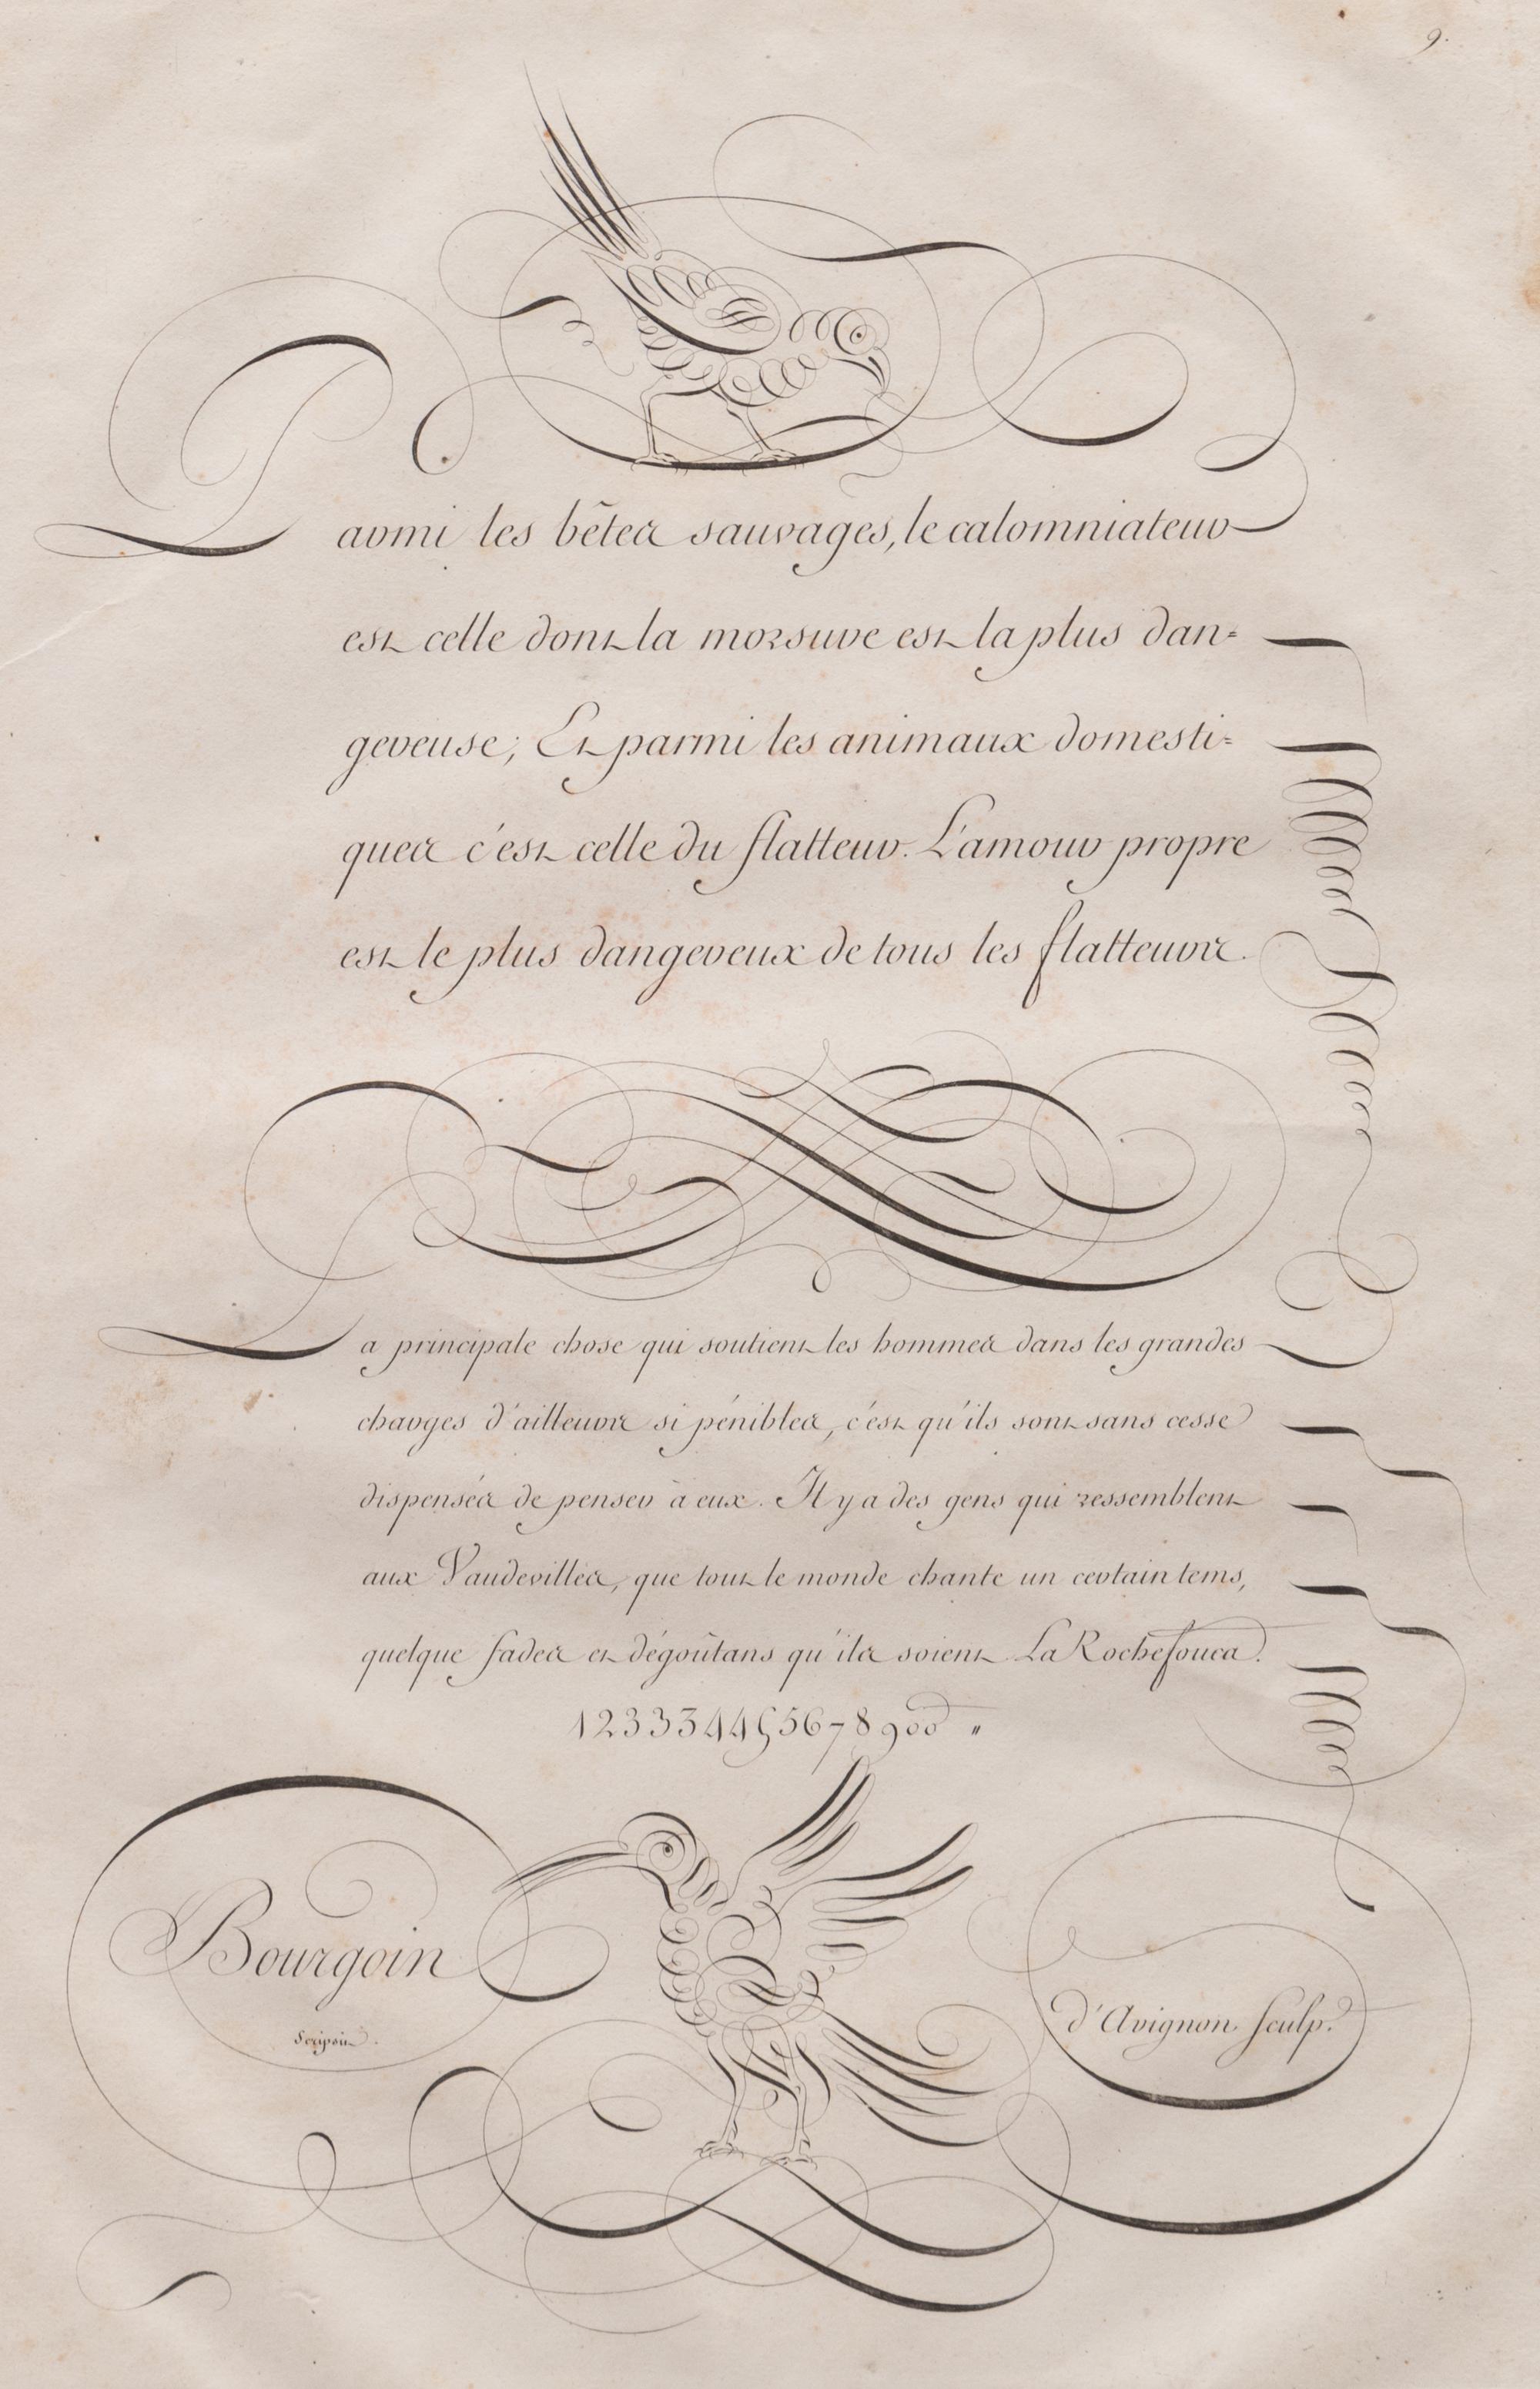 9.
Parmi les bêtes sauvages, le calomniateur
est celle dont la morsure est la plus dan=
gereuse; Et parmi les animaux domesti=
ques c'est celle du flatteur. L'amour propre
est le plus dangereux de tous les flatteurs.
La principale chose qui soutient les hommes dans les grandes
charges d'ailleurs si pénibles, c'est qu'ils sont sans cesse
dispensés de penser à eux. Il y a des gens qui ressemblent
aux Vaudevilles, que tout le monde chante un certain tems,
quelque fades et dégoûtans qu'ils soient La Rochefouca.
123334455678900 "
Bourgoin
Scripsit.
d'Avignon Sculp.